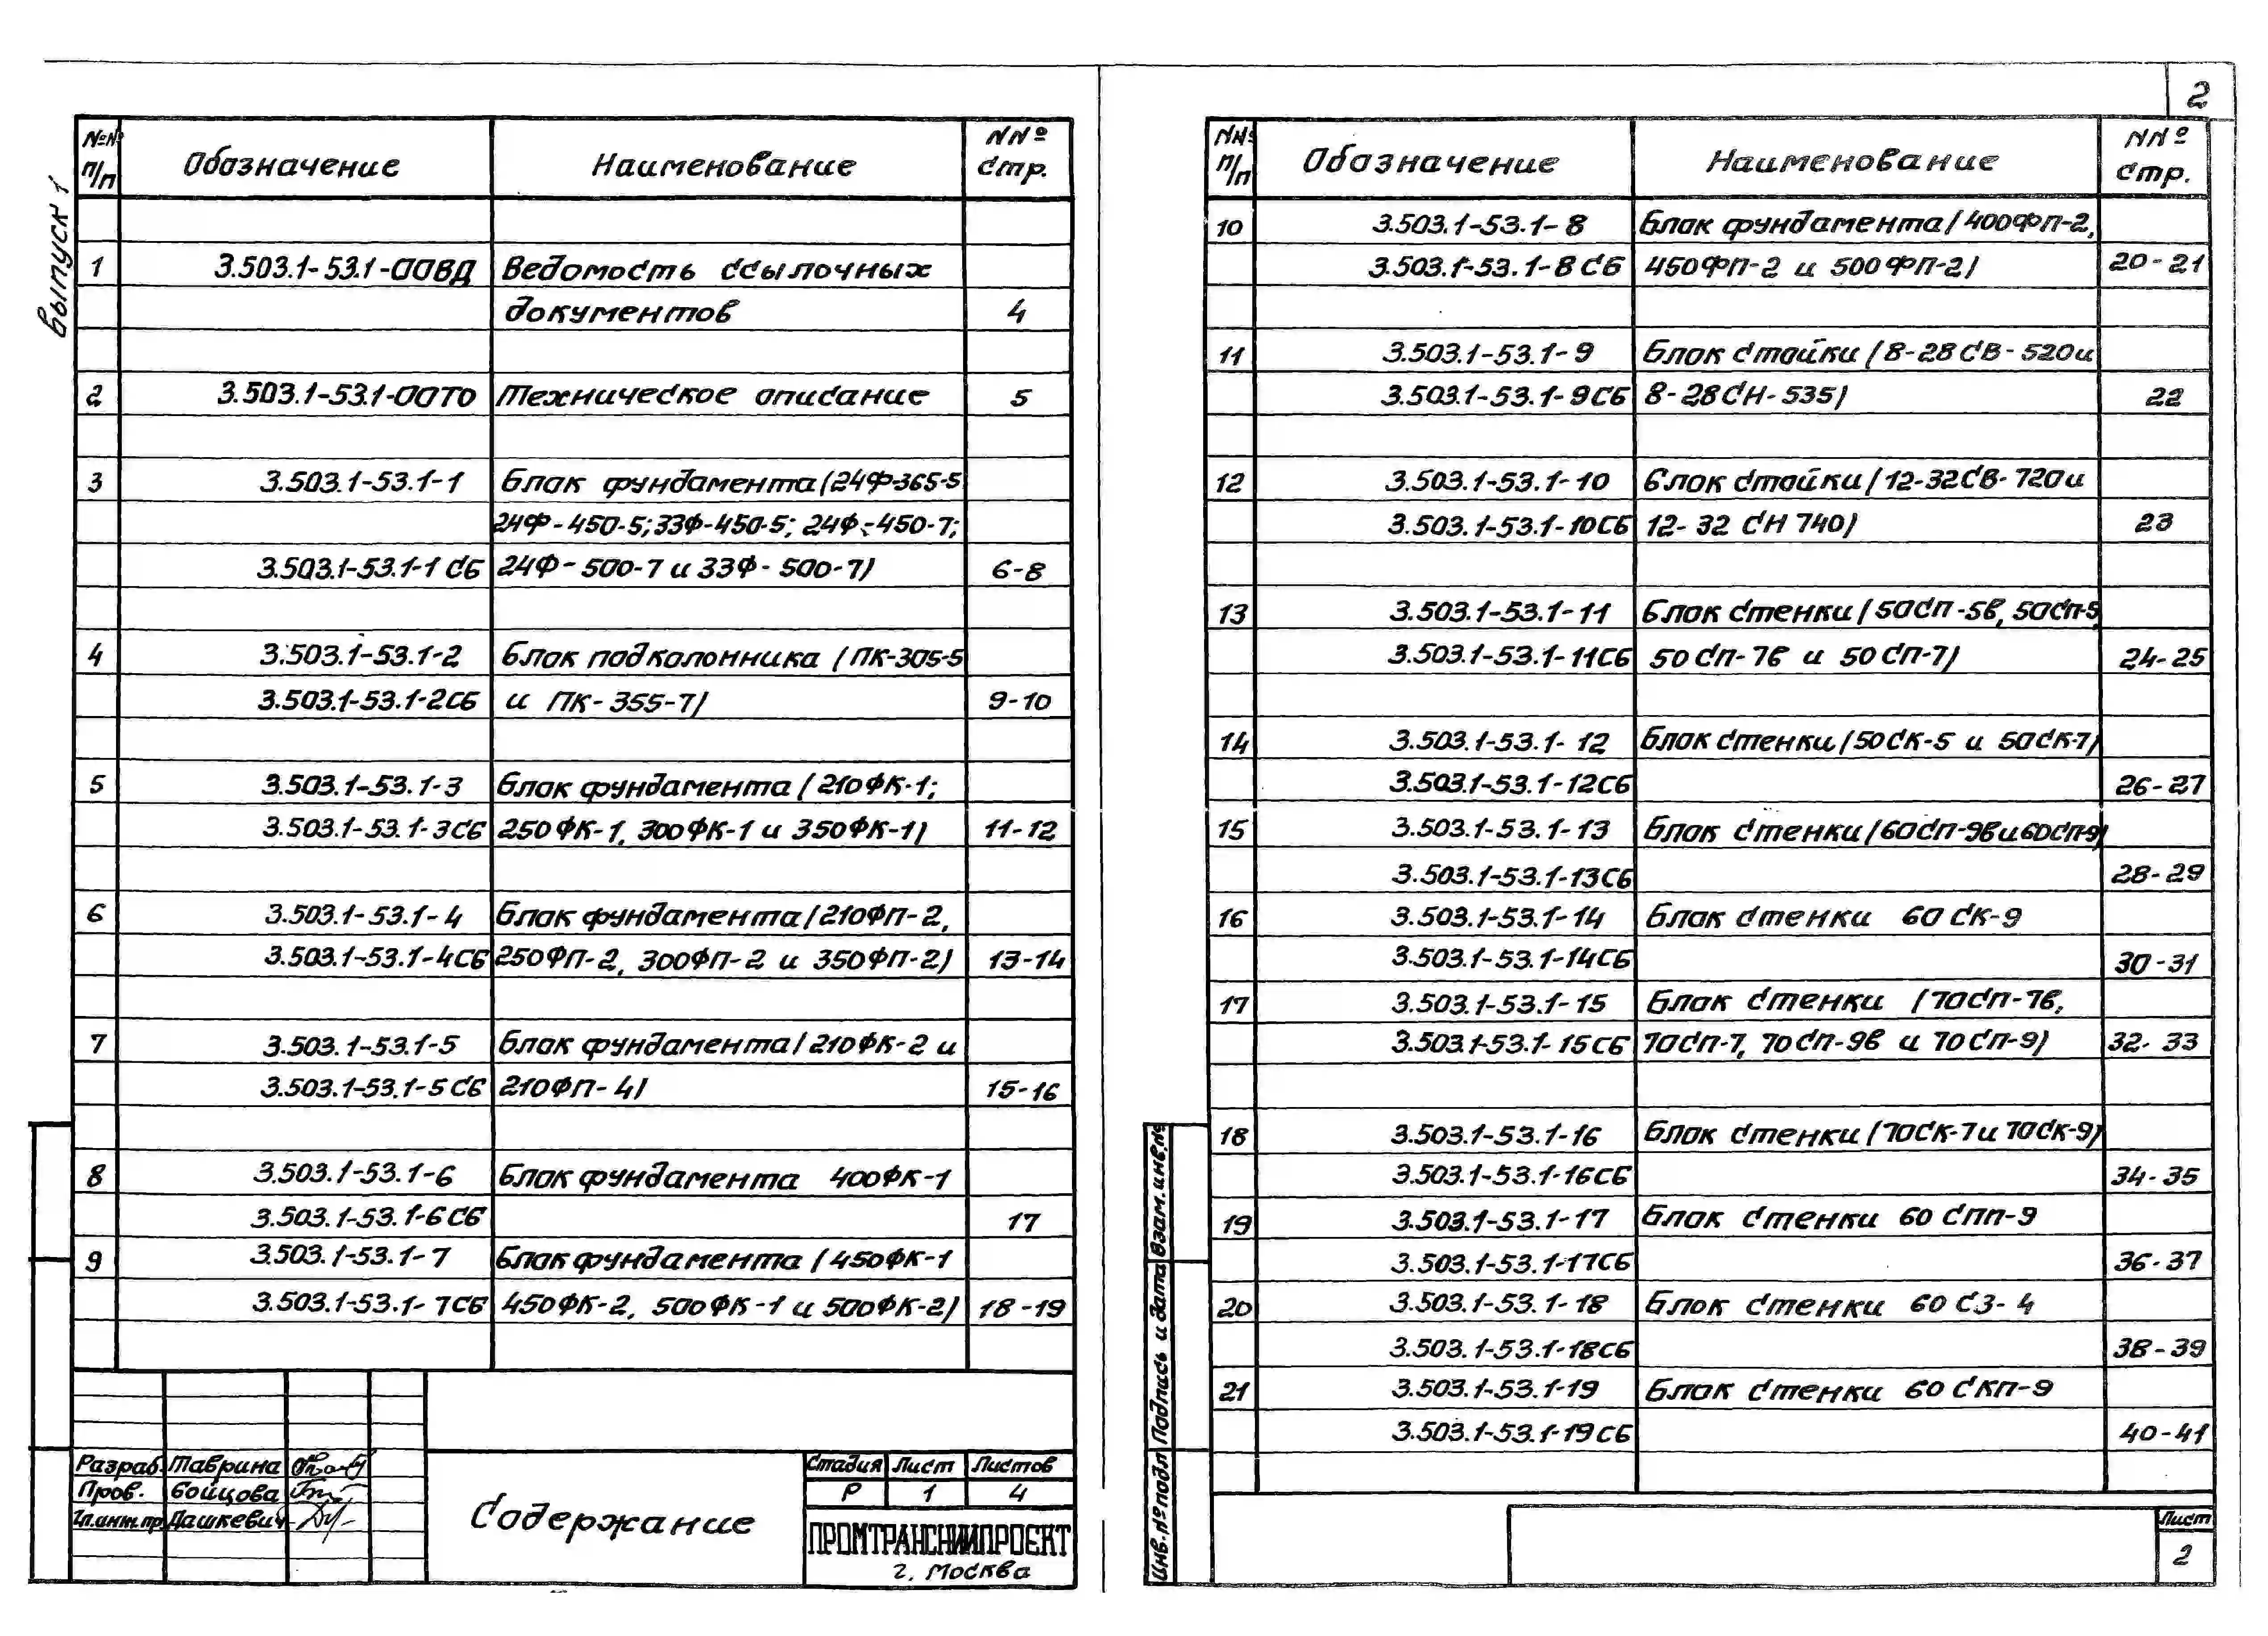 2
выпуск 1
№№ п/п Обозначение Наименование №№ стр.
1 3.503.1-53.1-00ВД Ведомость ссылочных
документов 4
2 3.503.1-53.1-00ТО Техническое описание 5
3 3.503.1-53.1-1 Блок фундамента (24Ф-365-5
24Ф-450-5; 33Ф-450-5; 24Ф-450-7;
3.503.1-53.1-1СБ 24Ф-500-7 и 33Ф-500-7) 6-8
4 3.503.1-53.1-2 Блок подколонника (ПК-305-5
3.503.1-53.1-2СБ и ПК-355-7) 9-10
5 3.503.1-53.1-3 Блок фундамента (210ФК-1;
3.503.1-53.1-3СБ 250ФК-1, 300ФК-1 и 350ФК-1) 11-12
6 3.503.1-53.1-4 Блок фундамента (210ФП-2,
3.503.1-53.1-4СБ 250ФП-2, 300ФП-2 и 350ФП-2) 13-14
7 3.503.1-53.1-5 Блок фундамента (210ФК-2 и
3.503.1-53.1-5СБ 210ФП-4) 15-16
8 3.503.1-53.1-6 Блок фундамента 400ФК-1
3.503.1-53.1-6СБ 17
9 3.503.1-53.1-7 Блок фундамента (450ФК-1
3.503.1-53.1-7СБ 450ФК-2, 500ФК-1 и 500ФК-2) 18-19
Разраб. Таврина
Пров. Бойцова
Гл.инж.пр. Дашкевич
Содержание
Стадия Лист Листов
Р 1 4
ПРОМТРАНСНИИПРОЕКТ
г. Москва
№№ п/п Обозначение Наименование №№ стр.
10 3.503.1-53.1-8 Блок фундамента (400ФП-2,
3.503.1-53.1-8СБ 450ФП-2 и 500ФП-2) 20-21
11 3.503.1-53.1-9 Блок стойки (8-28СВ-520 и
3.503.1-53.1-9СБ 8-28СН-535) 22
12 3.503.1-53.1-10 Блок стойки (12-32СВ-720 и
3.503.1-53.1-10СБ 12-32 СН 740) 23
13 3.503.1-53.1-11 Блок стенки (50СП-5в, 50СП-5,
3.503.1-53.1-11СБ 50СП-7в и 50СП-7) 24-25
14 3.503.1-53.1-12 Блок стенки (50СК-5 и 50СК-7)
3.503.1-53.1-12СБ 26-27
15 3.503.1-53.1-13 Блок стенки (60СП-9в и 60СП-9)
3.503.1-53.1-13СБ 28-29
16 3.503.1-53.1-14 Блок стенки 60СК-9
3.503.1-53.1-14СБ 30-31
17 3.503.1-53.1-15 Блок стенки (70СП-7в,
3.503.1-53.1-15СБ 70СП-7, 70СП-9в и 70СП-9) 32-33
18 3.503.1-53.1-16 Блок стенки (70СК-7 и 70СК-9)
3.503.1-53.1-16СБ 34-35
19 3.503.1-53.1-17 Блок стенки 60 СПП-9
3.503.1-53.1-17СБ 36-37
20 3.503.1-53.1-18 Блок стенки 60 СЗ-4
3.503.1-53.1-18СБ 38-39
21 3.503.1-53.1-19 Блок стенки 60 СКП-9
3.503.1-53.1-19СБ 40-41
Взам.инв.№
Подпись и дата
Инв.№ подл
Лист
2